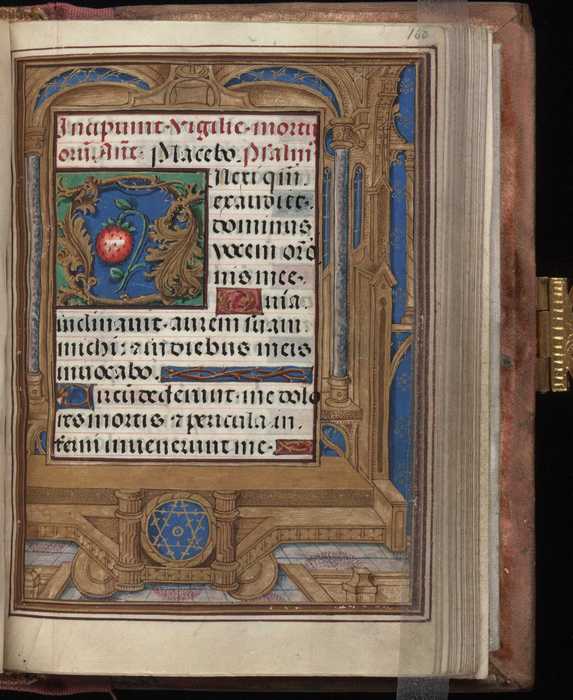 160
Incipiunt·vigilie·mortu
orū. Añt. Placebo. Psalm̄
ilexi qm̄
exaudiet·
dominus
vocem orō
nis mee·
uia
inclinauit·aurem suam
michi: ⁊ in diebus meis
inuocabo.
Circūdederunt·me dolo
res mortis ⁊ pericula in
ferni inuenerunt me·